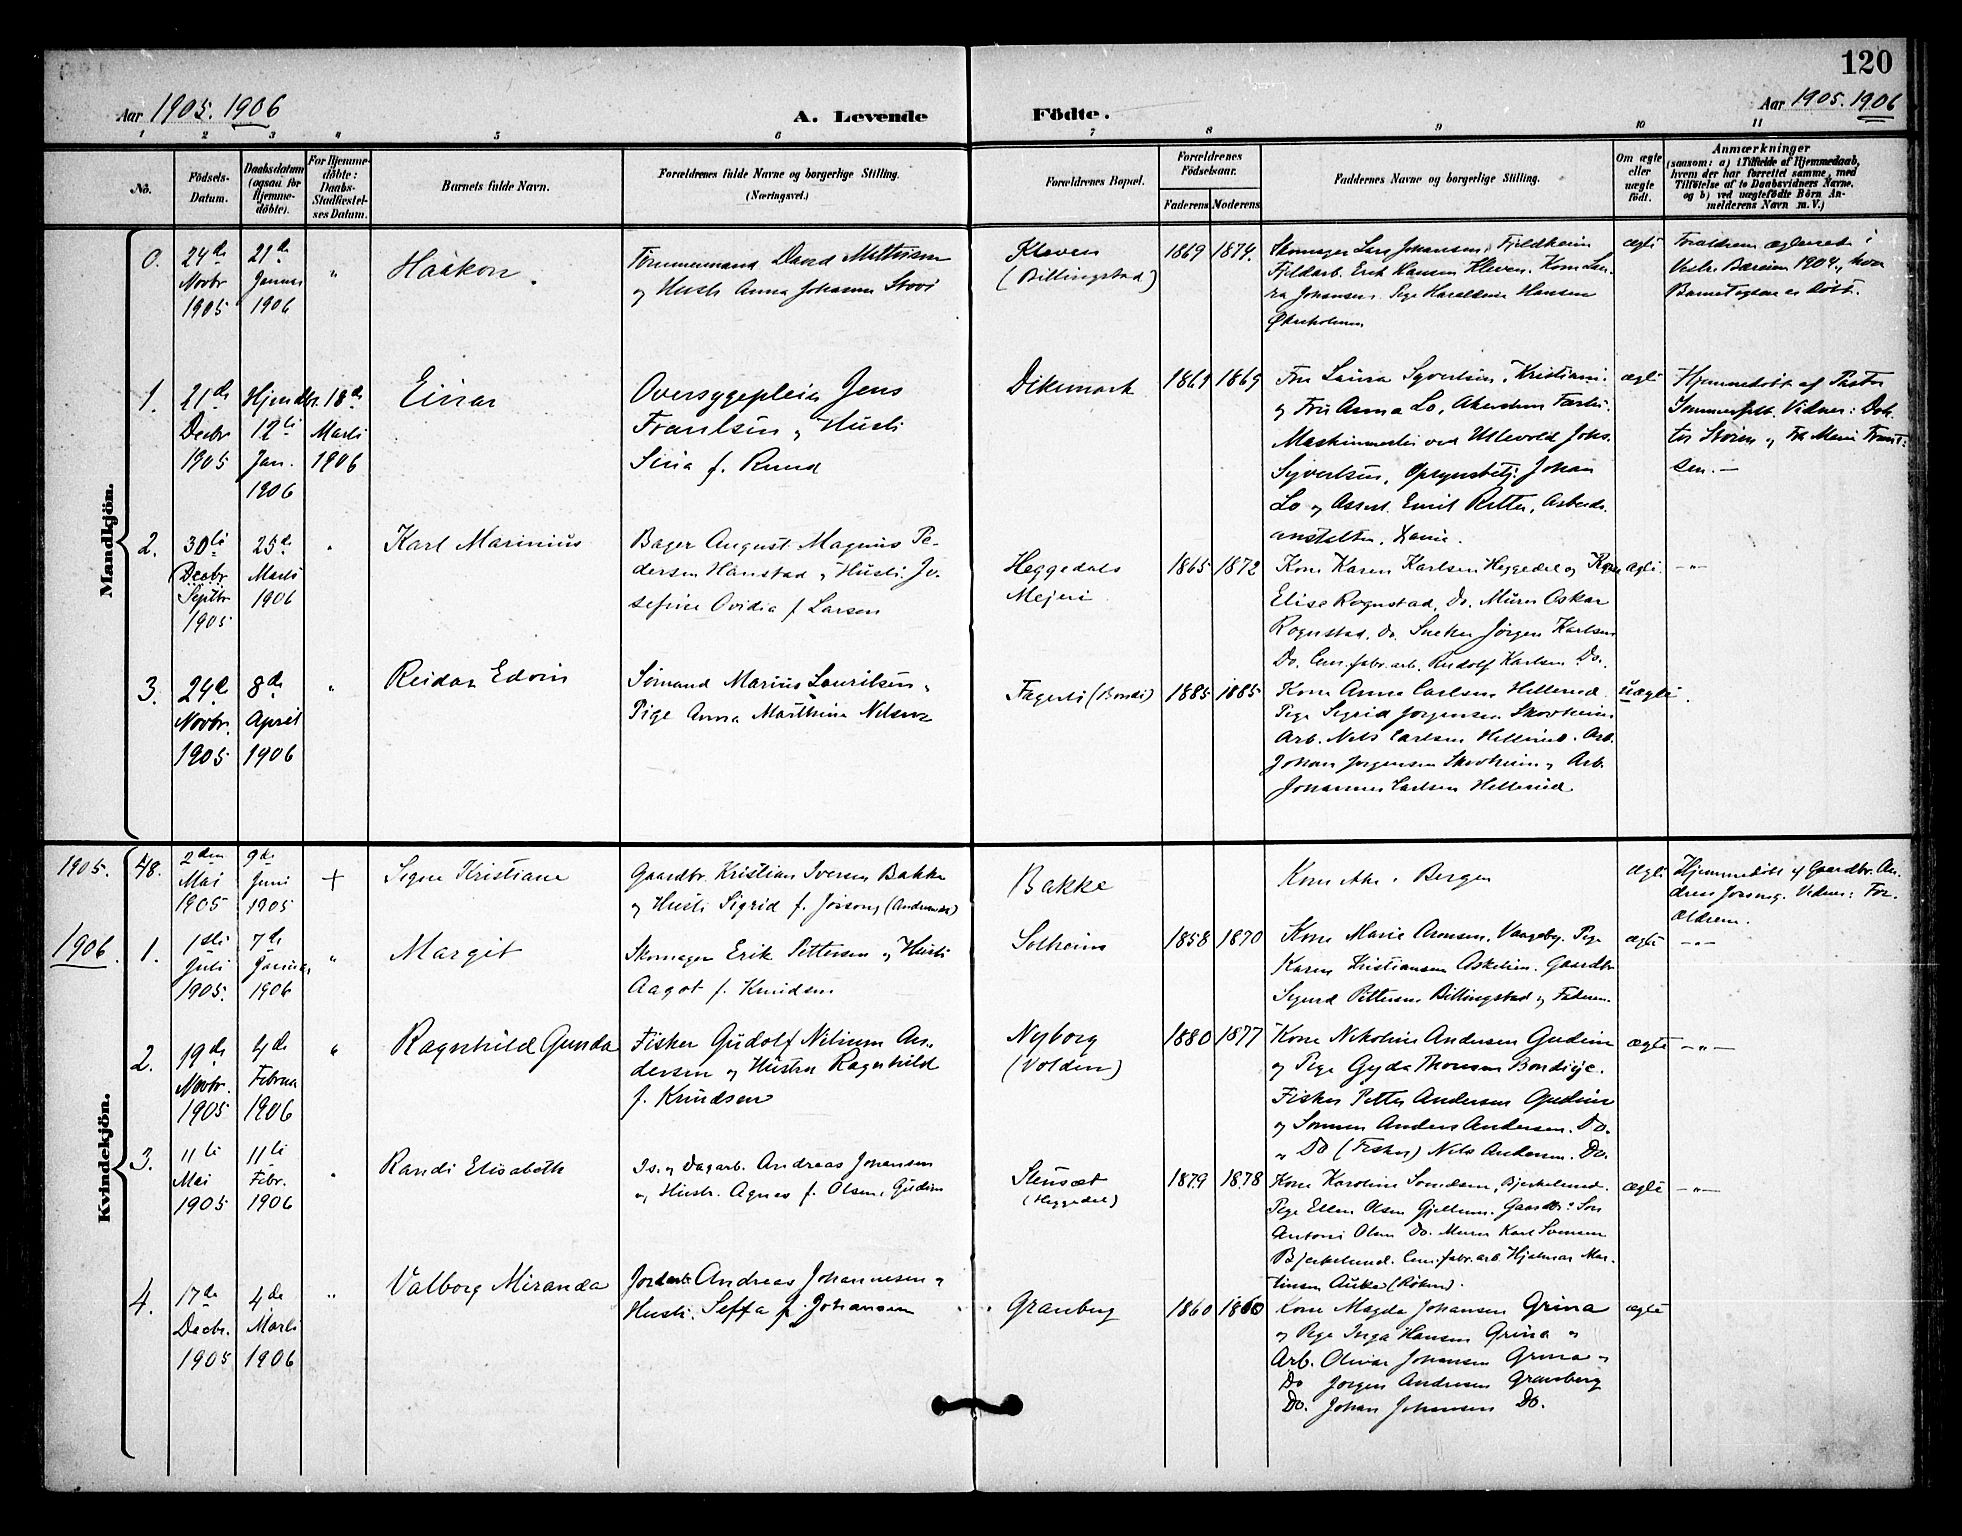 120
Aar 1905. 1906
A. Levende
Födte.
Aar 1905. 1906
1 2 3 4 5 6 7 8 9 10 11
No.
Födsels-
Datum.
Daabsdatum
(ogsaa for
Hjemme-
döbte).
For Hjemme-
döbte:
Daabs-
Stadfæstel-
ses Datum.
Barnets fulde Navn.
Forældrenes fulde Navne og borgerlige Stilling.
(Næringsvei.)
Forældrenes Bopæl.
Forældrenes
Födselsaar.
Faderens Moderens
Faddernes Navne og borgerlige Stilling.
Om ægte
eller
uægte
födt.
Anmærkninger
(saasom: a) i Tilfælde af Hjemmedaab,
hvem der har forrettet samme, med
Tilföielse af to Daabsvidners Navne,
og b) ved uægtefödte Börn An-
melderens Navn m. V.)
Mandkjön.
0.
24de
Novbr
1905
21de
Januar
1906
"
Haakon.
Tømmermand David
og Hustr Anna Johanne
Kleven
(Billingstad)
1869 1874.
Skomager Lars Johansen, Fjeldheim
Fjeldarb. Erik Hansen Kleven. Kone Lau-
ra Johansen. Pige Haraldine Hansen
ægte
Forældrene ægteviet i
Vestre Bærum 1904, hvor
Barnet ogsaa er døbt.
1.
21de
Decbr
1905
Hjemdbt.
12te
Jan.
1906
18de
Marts
1906
Einar
Oversygepleier Jens
Frantsen og Hustr
Sina f. Ruud
Dikemark
1869 1869
Fru Laura Syvertsen, Kristiania
og Fru Anna Lo, Akershus
Maskinmester ved Ullevold Johs.
Syvertsen, Opsynsbetj. Johan
Lo og Assist. Emil Ritter, Arbeids-
anstalten,
ægte
Hjemmedøbt af Pastor
Sommerfelt. Vidner: Dok-
tor og Frk Marie Frant-
sen. —
2.
30te
Decbr
Septbr
1905
25de
Marts
1906
"
Karl Marinius
Bager August Magnus Pe-
dersen Hanstad og Hustr. Jo-
sefine Ovidia f Larsen
Heggedals
Mejeri
1865 1872
Kone Karen Karlsen Heggedal og Kone
Elise Rognstad, Do. Murer Oskar
Rognstad, Do. Snekker Jørgen Karlsen
Do. Cem.fabr.arb. Rudolf Karlsen Do.
ægte.
—"—
3.
24de
Novbr.
1905
8de
April
1906
"
Reidar Edvin
Sømand Marius Lauritsen og
Pige Anna Marthine Nilsen
Fagerli (Bondi)
1885 1885
Kone Anna Carlsen Hellerud.
Pige Sigrid Jørgensen Skovheim
Arb. Nils Carlsen Hellerud. Arb.
Johan Jørgensen Skovheim og Arb.
Johannes Carlsen Hellerud
uægte.
Kvindekjön.
1905.
48.
2den
Mai
1905
9de
Juni
1905
+
Signe Kristiane
Gaardbr. Kristian Iversen Bakke
og Hustr Sigrid f. (Andersdtr)
Bakke
Kone Bergen
ægte
Hjemmedøbt af Gaardbr. An-
dreas Vidner: For-
ældrene.
1906.
1.
1ste
Juli
1905.
7de
Januar
1906
"
Margit
Skomager Erik Pettersen og Hustr
Aagot f. Knudsen
Solheim
1858 1870
Kone Marie Aronsen, Vaagebg. Pige
Karen Kristiansen Askelien. Gaardbr
Sigurd Pettersen Billingstad og Faderen.
ægte
—"—
2.
19de
Novbr.
1905
4de
Februar
1906
"
Ragnhild Gunda
Fisker Gudolf Nilsen An-
dersen og Hustru Ragnhild
f. Knudsen
Nyborg
(Volden)
1880 1877
Kone Nikoline Andersen Gudim
og Pige Gyda Thoresen Bondiøe.
Fisker Petter Andersen Gudim
og Sømen Anders Andersen. Do.
" Do (Fisker) Nils Andersen. Do.
ægte
—"—
3.
11te
Mai
1905
11te
Febr.
1906
"
Randi Elisabeth
Is. og Dagarb. Andreas Johansen
og Hustr. Agnes f. Olsen, Gudim
Stensæt
(Heggedal)
1879 1878
Kone Karoline Svendsen, Bjerkelund.
Pige Ellen Olsen Gjellum. Gaardbr. Søn
Antoni Olsen Do. Murer Karl Svensen
Bjerkelund. Cem.fabr.arb Hjalmar Mar-
tinsen Auke (Røken).
ægte
—"—
4.
17de
Decbr.
1905
4de
Marts
1906
"
Valborg Miranda
Jordarb. Andreas Johannesen og
Hustr. Seffa f. Johansen
Gransberg
1860 1860
Kone Magda Johansen Grina
og Pige Inga Hansen Grina og
Arb. Olivar Johansen Grina og
Do Jørgen Andresen Gransberg
Do. Johan Johansen Do.
ægte